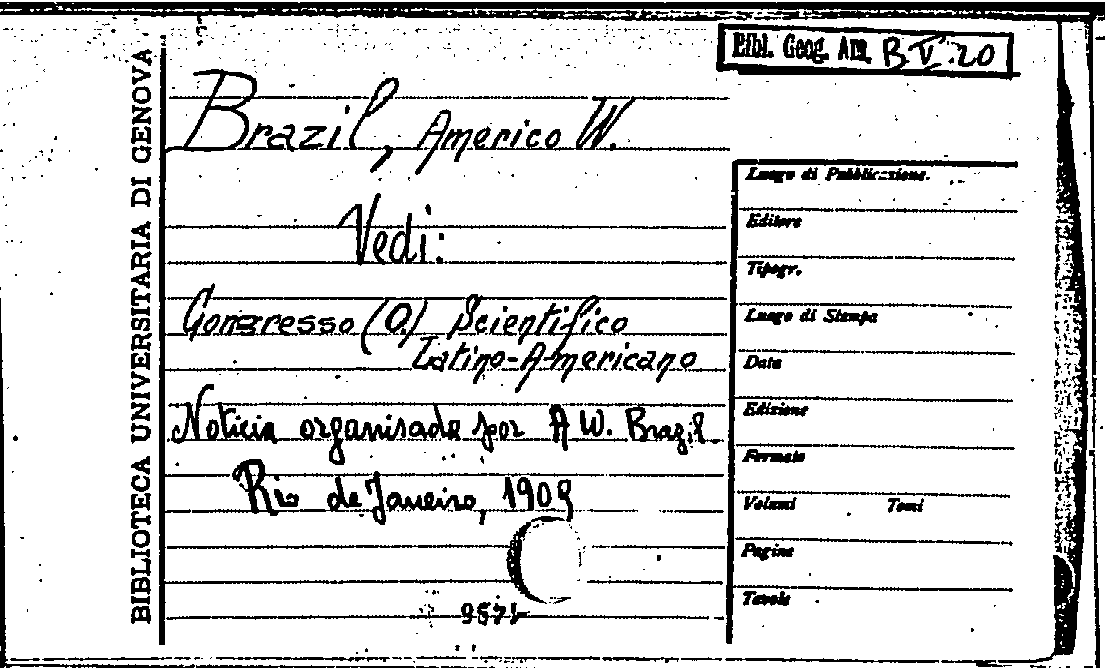 Bibl. Geog. Am. B V. 20
BIBLIOTECA UNIVERSITARIA DI GENOVA
Brazil, Americo W.
Vedi:
Congresso (O) Scientifico
Latino-Americano
Noticia organisada por A W. Brazil.
Rio de Janeiro, 1909
Luogo di Pubblicazione.
Editore
Tipogr.
Luogo di Stampa
Data
Edizione
Formato
Volumi Tomi
Pagine
Tavole